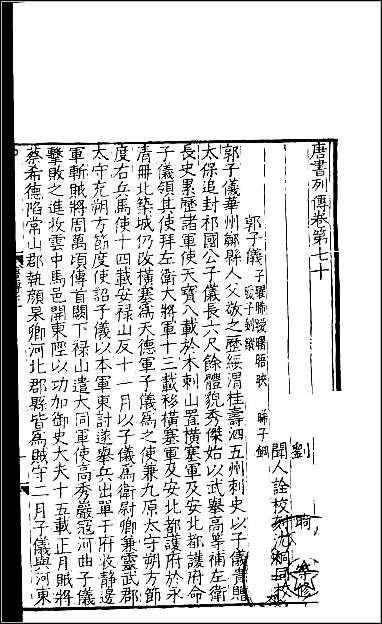 唐書列傳卷第七十
劉 昫 等修
聞人詮校刻沈桐同校
郭子儀 子曜晞曖曙晤映 晞子鋼
曖子釗鏦
郭子儀華州鄭縣人父敬之歷綏渭桂壽泗五州刺史以子儀貴贈
太保追封祁國公子儀長六尺餘體貌秀傑始以武舉高等補左衛
長史累歷諸軍使天寶八載於木剌山置橫塞軍及安北都護府命
子儀領其使拜左衛大將軍十三載移橫塞軍及安北都護府於永
清冊北築城仍改橫塞爲天德軍子儀爲之使兼九原太守朔方節
度右兵馬使十四載安祿山反十一月以子儀爲衛尉卿兼靈武郡
太守充朔方節度使詔子儀以本軍東討遂舉兵出單于府收靜邊
軍斬賊將周萬頃傳首闕下祿山遣大同軍使高秀巖冦河曲子儀
擊敗之進收雲中馬邑開東陘以功加御史大夫十五載正月賊將
蔡希德陷常山郡執顏杲卿河北郡縣皆爲賊守二月子儀與河東